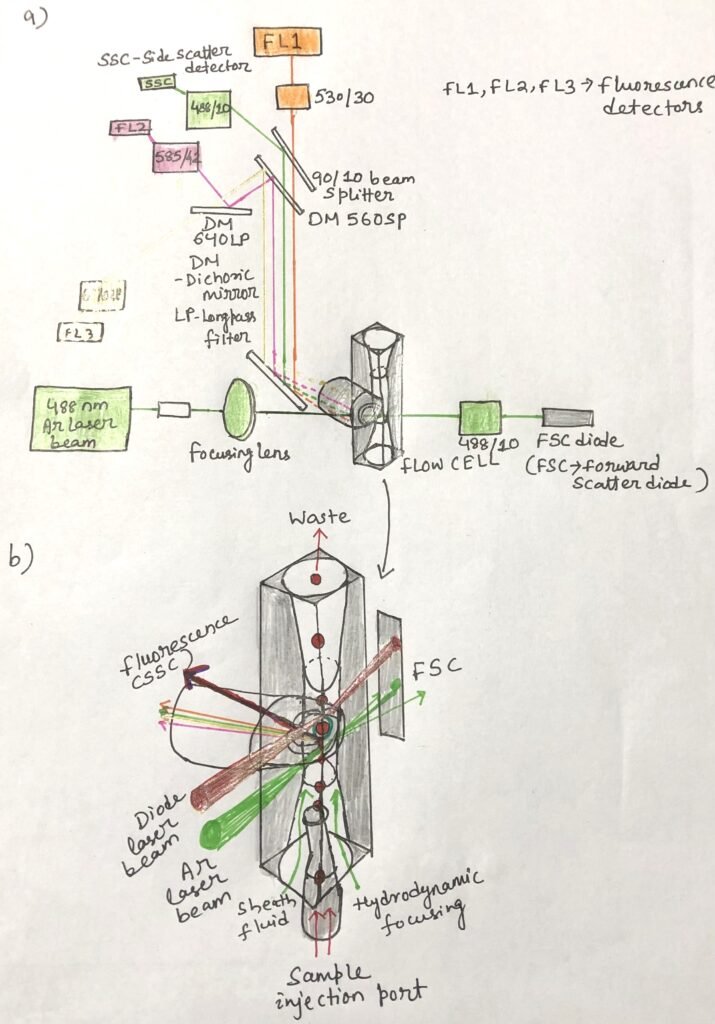 a)
FL1
SSC-Side scatter
detector
SSC
488/10
530/30
FL1, FL2, FL3 → fluorescence
detectors
FL2
585/42
90/10 beam
splitter
DM 560SP
DM
640LP
DM
-Dichoric
mirror
LP-Longpass
filter
FL3
488 nm
Ar Laser
beam
focusing lens
FLOW CELL
488/10
FSC diode
(FSC→forward
scatter diode)
b)
Waste
fluorescence
CSSC
FSC
Diode
laser
beam
Ar
laser
beam
Sheath
fluid
Hydrodynamic
focusing
Sample
injection port